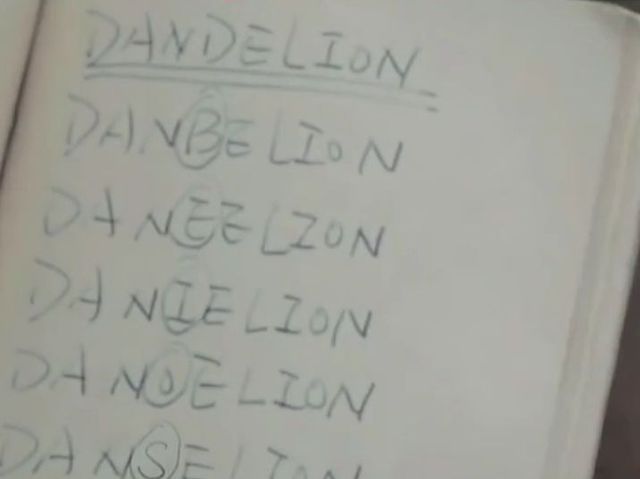 DANDELION
DANBELION
DANEELION
DANIELION
DANOELION
DANSELION